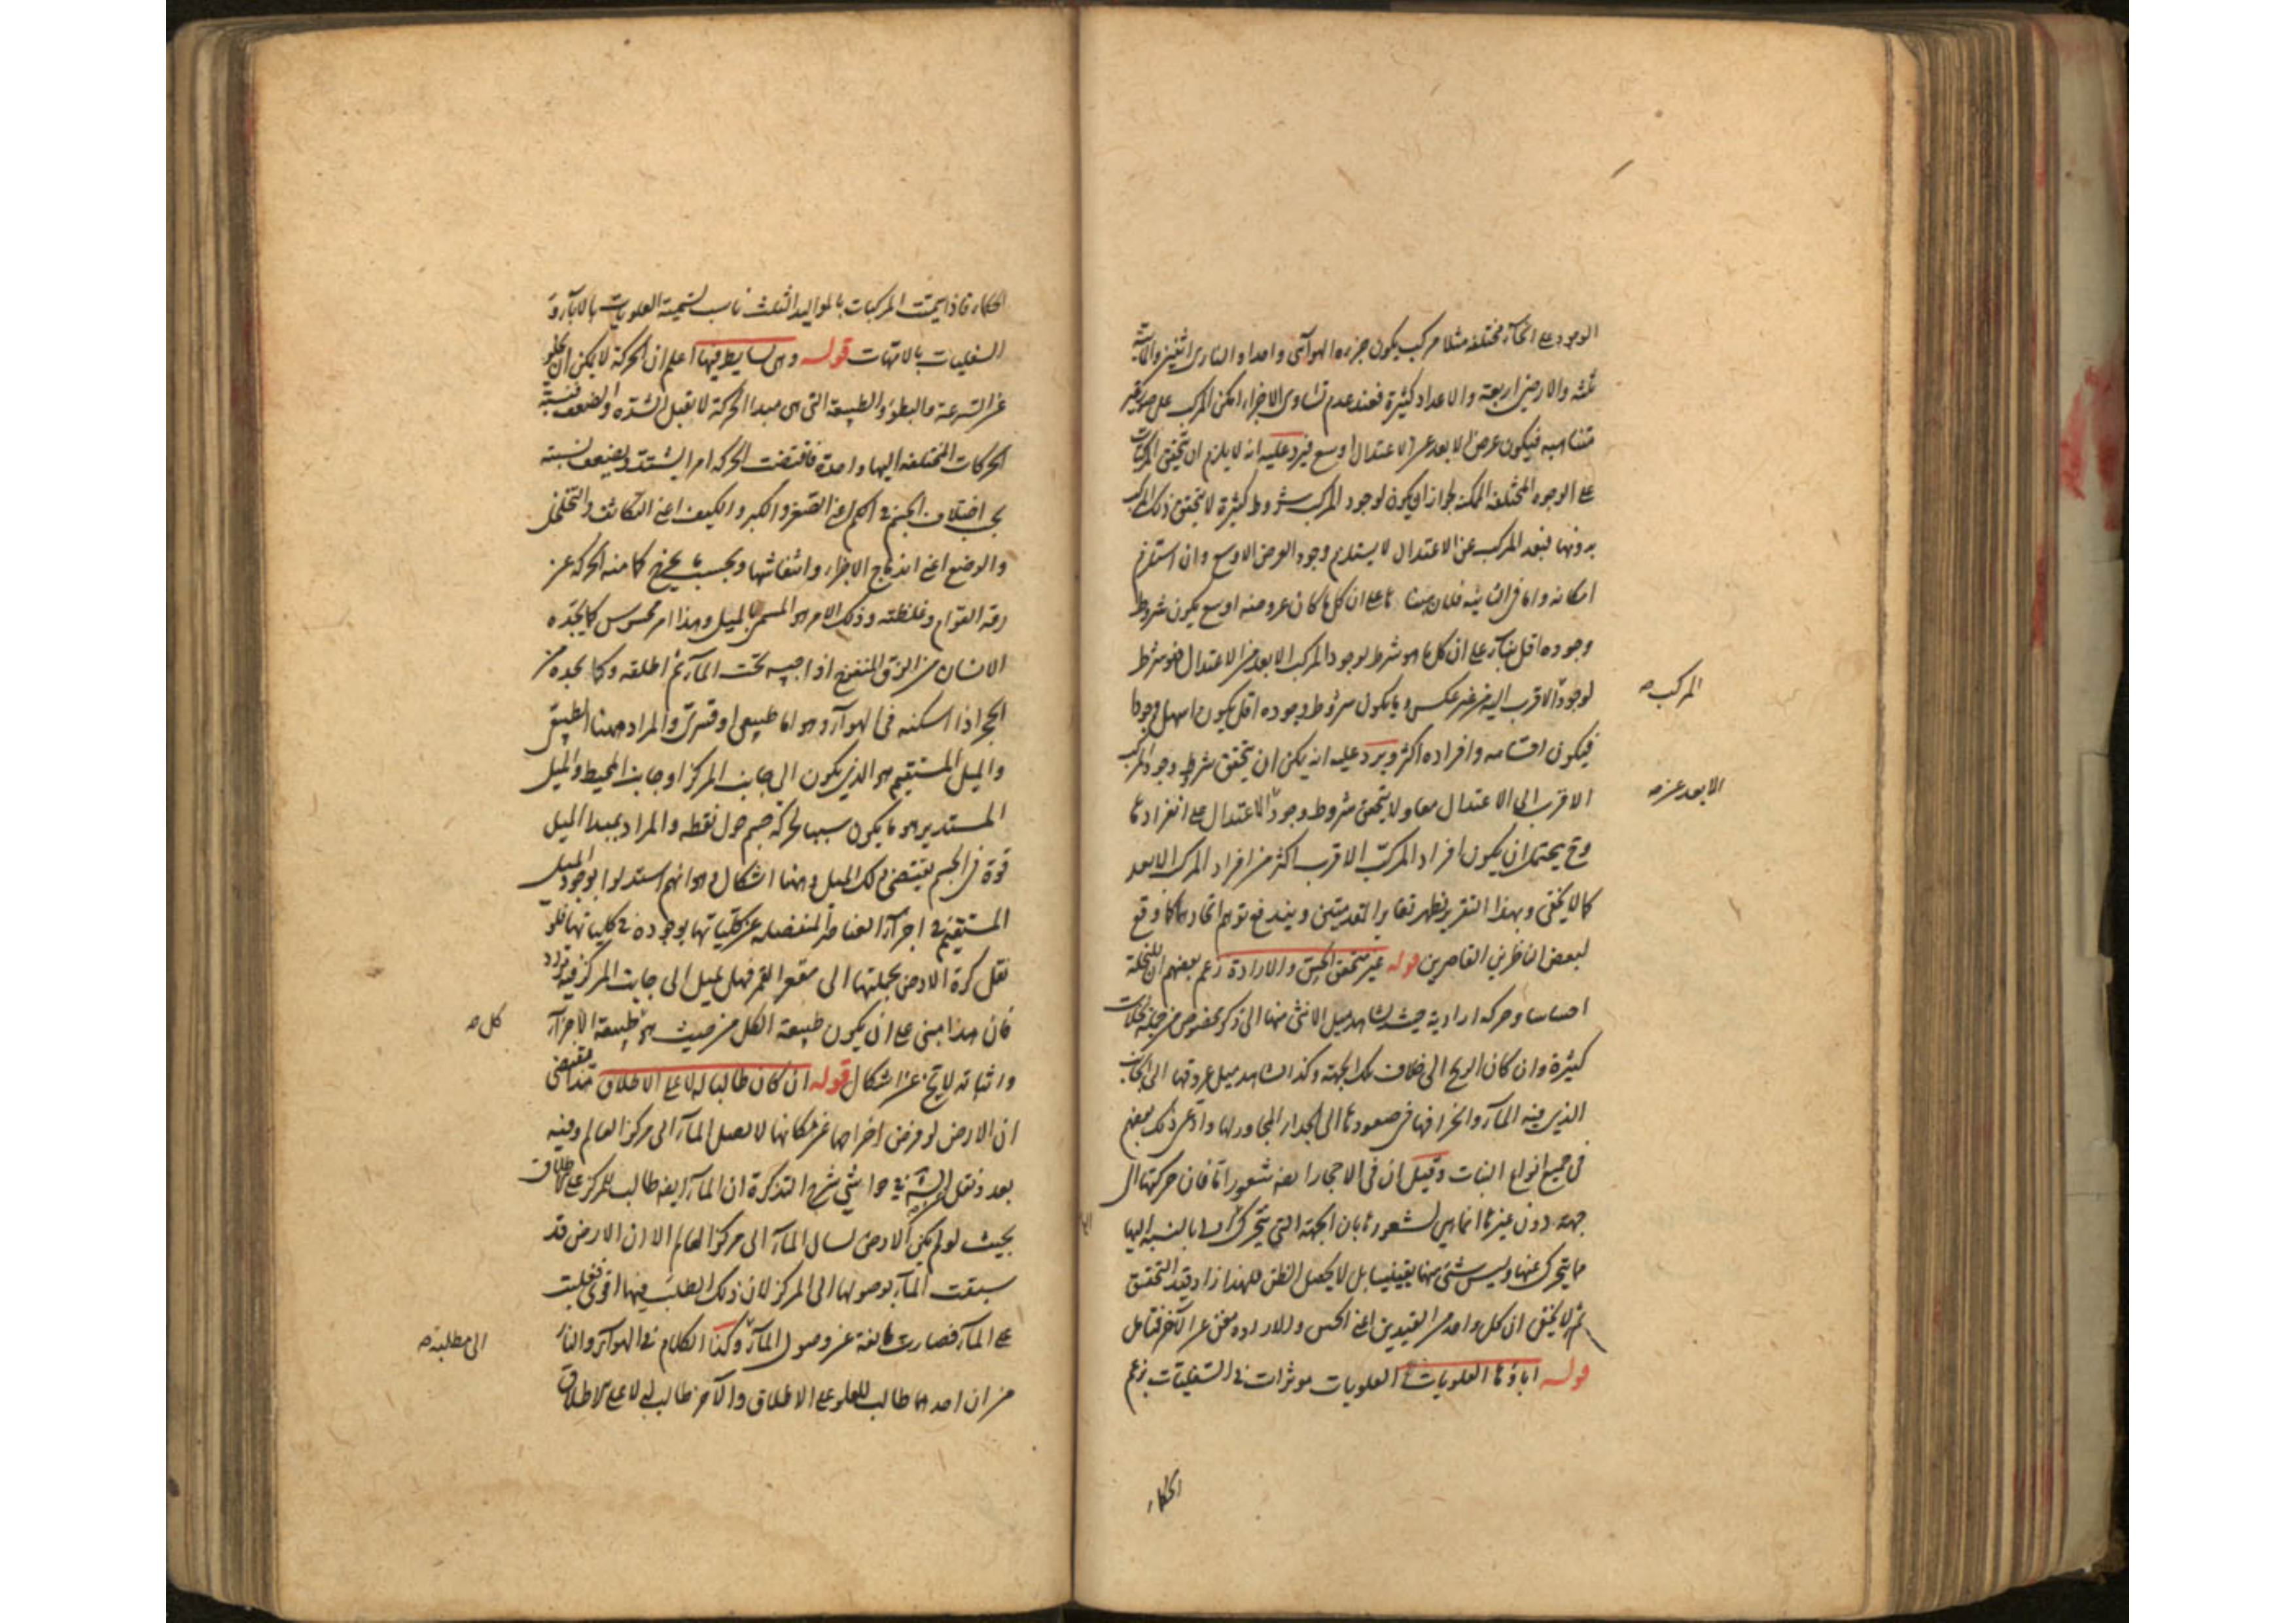 الوجود على انحاء مختلفة مثلا مركب يكون جزءه الهوائى واحدا والنارى اثنين والمائية
ثلثه والارضى اربعة والاعداد كثيرة فعند عدم تساوى الاجزاء امكن المركب على صور غير
متناهيه فيكون عرض الابعد عن الاعتدال اوسع فيرد عليه انه لا يلزم ان يتحقق المركبات
على الوجوه المختلفة الممكنه لجواز ان يكون لوجود المركب شروط كثيرة لا يتحقق ذلك المركب
بدونها فبعد المركب عن الاعتدال لا يستلزم وجود العرض الاوسع وان استلزم
امكانه واما فى الثانية فلان مبناها على ان كل ما كان عرضه اوسع يكون شروط
وجوده اقل بناء على ان كل ما هو شرط لوجود المركب الابعد من الاعتدال فهو شرط
لوجود الاقرب اليه من غير عكس وما يكون شروط وجوده اقل يكون اسهل وجودا
المركب صح
فيكون اقسامه وافراده اكثر ويرد عليه انه يمكن ان يتحقق شرط وجود المركب
الاقرب الى الاعتدال معا ولا يتحقق شروط وجود الاعتدال على انفرادها
الابعد عن صح
وح يحتمل ان يكون افراد المركب الاقرب اكثر من افراد المركب الابعد
كما لا يخفى وبهذا التقرير ظهر تغاير المقدمتين ويندفع توهم اتحادهما كما وقع
لبعض الناظرين القاصرين قوله غير متحقق الحس والارادة زعم بعضهم ان للنخلة
احساسا وحركه ارادية حيث يشاهد ميل الانثى منها الى ذكر مخصوص من جملة نخلات
كثيرة وان كان الريح الى خلاف تلك الجهة وكذا يشاهد ميل عروقها الى الجانب
الذى فيه الماء وانحرافها فى صعودها الى الجدار المجاور لها وادعى ذلك بعضهم
فى جميع انواع النبات وقيل ان فى الاحجار ايضا شعورا ما فان حركتها الى
جهة دون غيرها انما هى لشعورها بان الجهة التى يتحرك اليها بالنسبة اليها
ما يتحرك عنها وليس شئ منها يقينيا بل لا يحصل الظن فلهذا زاد قيد التحقق
ثم لا يخفى ان كل واحد من القيدين اعنى الحس والاراده مغن عن الآخر فتامل
قوله آباؤها العلويات العلويات موثرات فى السفليات بزعم
الحكماء
الحكماء فاذا سميت المركبات بالمواليد الثلث ناسب تسمية العلويات بالآباء و
السفليات بالامهات قوله وهى بسايط فيها اعلم ان الحركة لا يمكن ان يخلو
عن السرعة والبطؤ والطبيعة التى هى مبدا الحركة لا تقبل الشدة والضعف فنسبة
الحركات المختلفة اليها واحدة فاقتضت الحركة امرا يشتد ويضعف بنسبته
بحسب اختلاف الجسم فى الكم اعنى الصغر والكبر والكيف اعنى التكاثف والتخلخل
والوضع اعنى اندماج الاجزاء وانتفاشها وبحسب ما يخرج كما منه الحركة عن
رقة القوام وغلظته وذلك الامر هو المسمى بالميل وهذا امر محسوس كما يجده
الانسان من الزق المنفوخ اذا حبسه تحت الماء ثم اطلقه وكما يجده من
الحجر اذا اسكنه فى الهواء وهو اما طبيعى او قسرى والمراد ههنا الطبيعى
والميل المستقيم هو الذى يكون الى جانب المركز او جانب المحيط والميل
المستدير هو ما يكون سببا لحركة جسم حول نقطه والمراد بمبدا الميل
قوة فى الجسم يقتضى ذلك الميل وههنا اشكال وهو انهم استدلوا بوجود الميل
المستقيم فى اجزاء العناصر المنفصله عن كلياتها بوجوده فى كلياتها فلو
نقل كرة الارض بجملتها الى مقعر القمر فهل يميل الى جانب المركز فيه تردد
فان هذا مبنى على ان يكون طبيعة الكل من حيث هو طبيعة الاجزاء
كل صح
واثباته لا يخ عن اشكال قوله ان كان طالبا له لا على الاطلاق هذا مقتضى
ان الارض لو فرض اخراجها عن مكانها لا يصل الماء الى مركز العالم وفيه
بعد ونقل فى حواشى شرح التذكرة ان الماء ايضا طالب للمركز على الاطلاق
بحيث لو لم يكن الارض لسال الماء الى مركز العالم الا ان الارض قد
سبقت الماء بوصولها الى المركز لان ذلك الطلب فيها اقوى فغلبت
على الماء فصارت مانعة عن وصول الماء وكذا الكلام فى الهواء والنار
الى مطلبه صح
من ان احدهما طالب للعلو على الاطلاق والآخر طالب له لا على الاطلاق